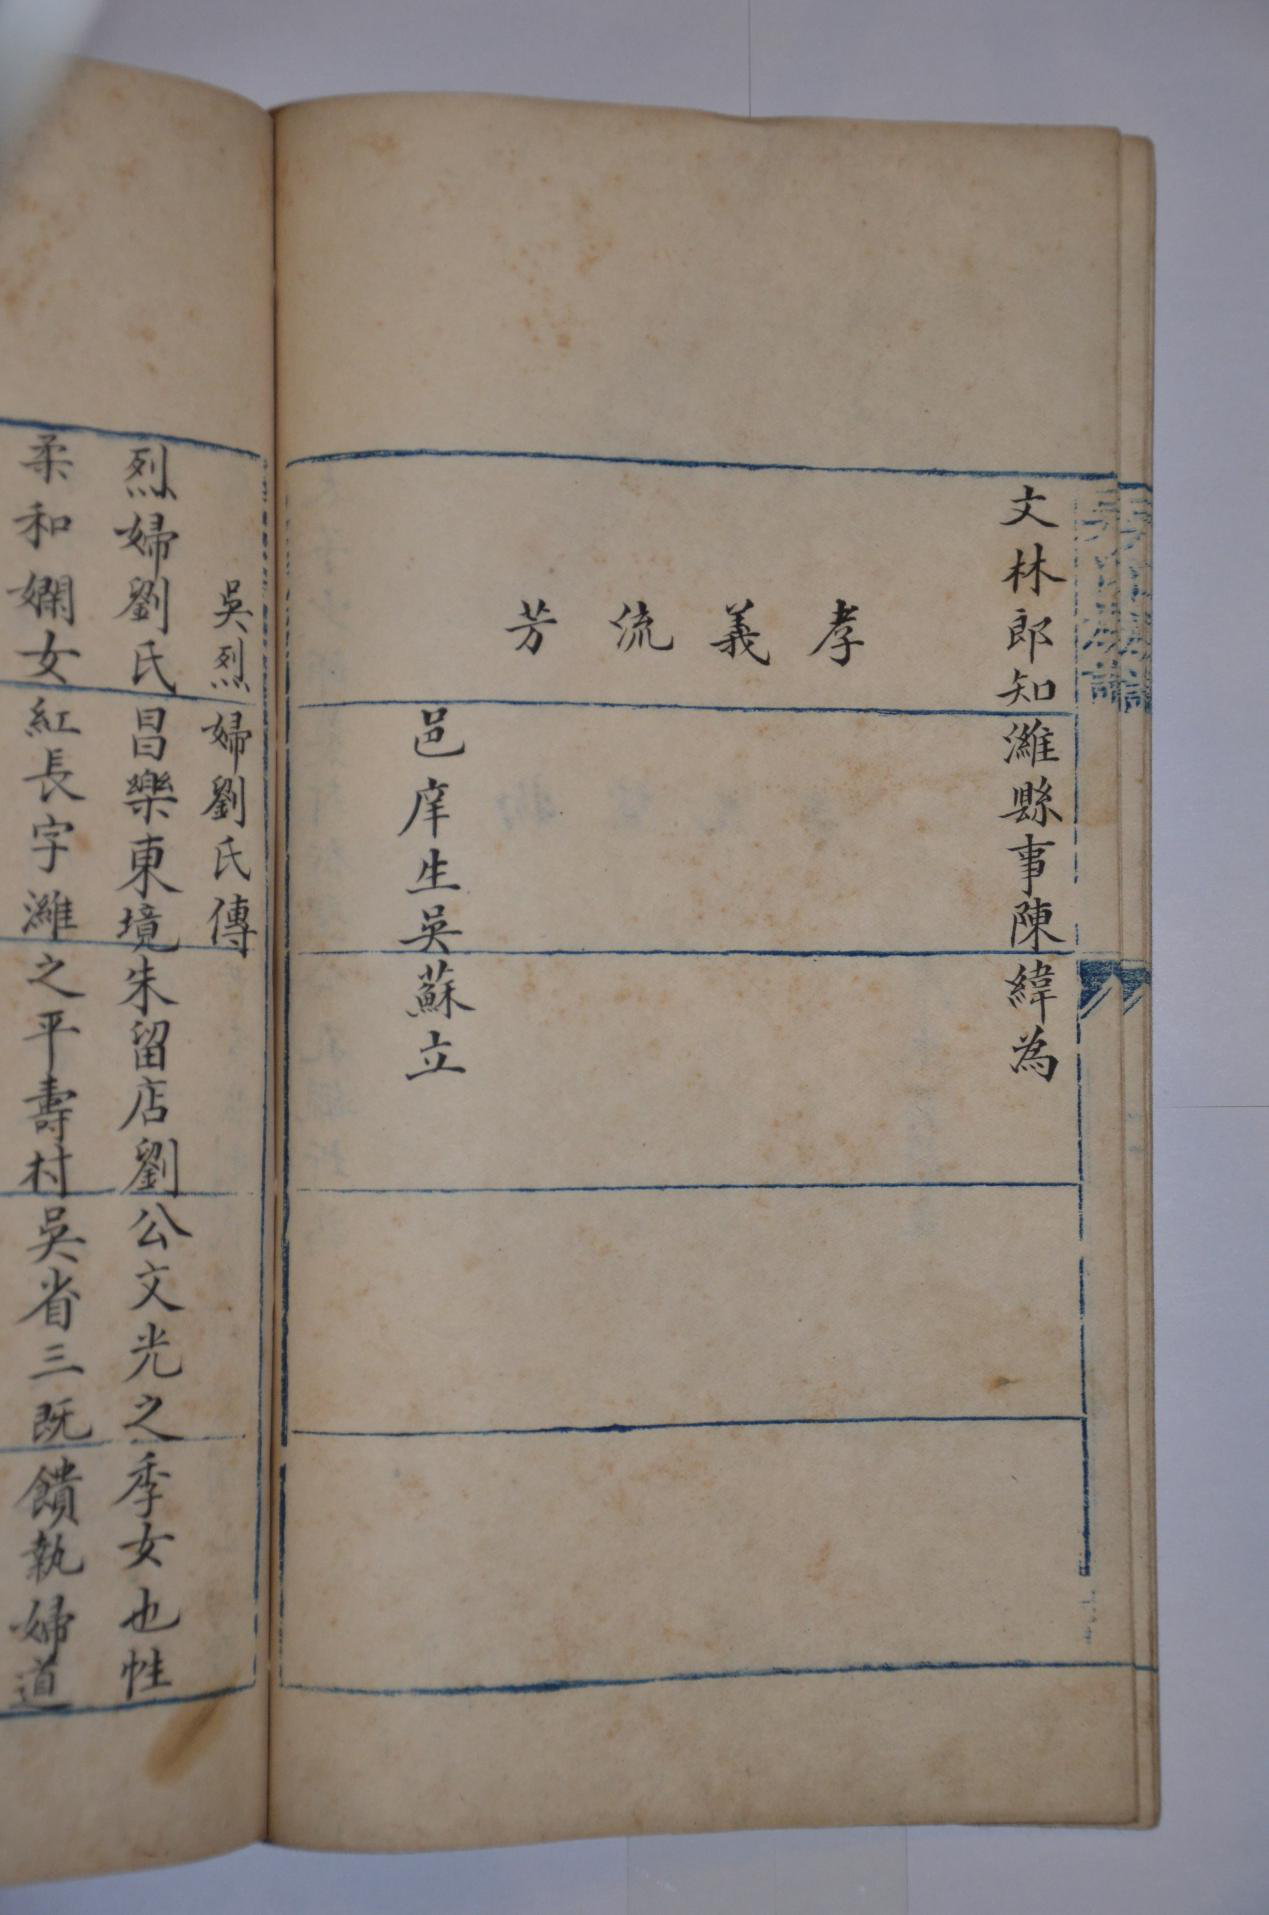 文林郎知濰縣事陳緯為
孝義流芳
邑庠生吳蘇立
吳烈婦劉氏傳
烈婦劉氏昌樂東境朱留店劉公文光之季女也性
柔和嫻女紅長字濰之平壽村吳省三既饋執婦道